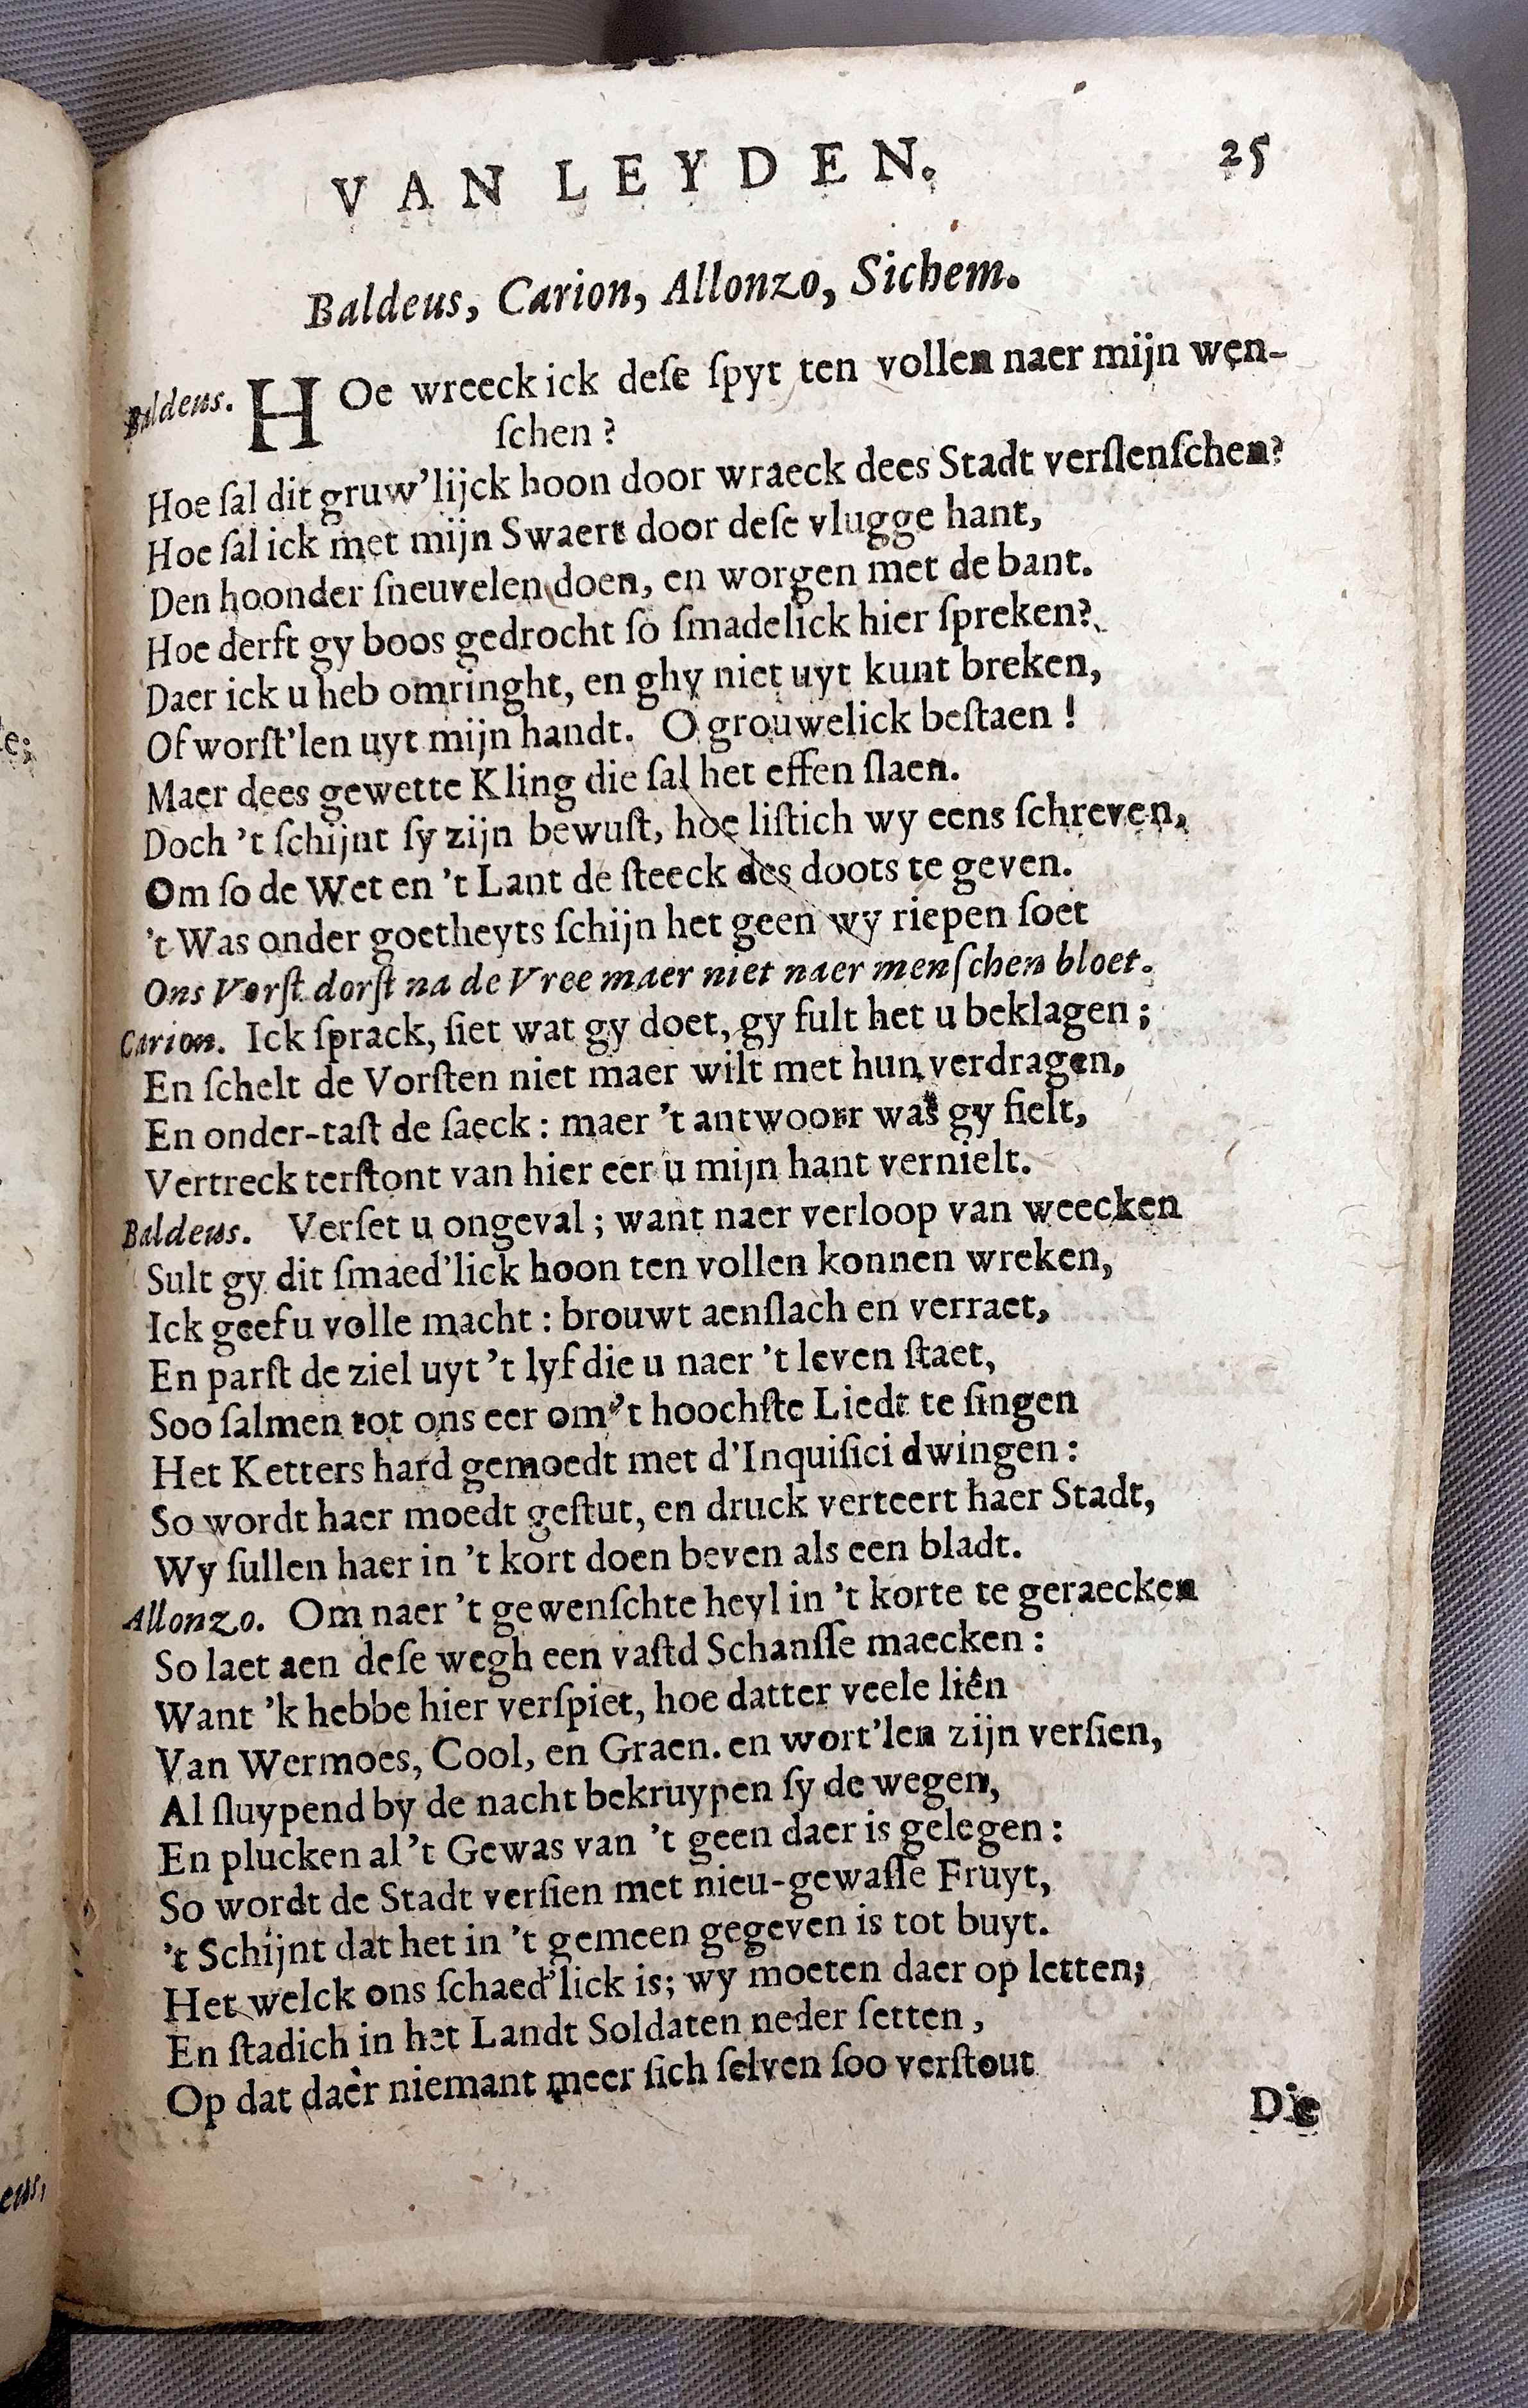 VAN LEYDEN. 25
Baldeus, Carion, Allonzo, Sichem.
Baldeus. HOe wreeck ick deſe ſpyt ten vollen naer mijn wen-
ſchen?
Hoe ſal dit gruw'lijck hoon door wraeck dees Stadt verſlenſchen?
Hoe ſal ick met mijn Swaert door deſe vlugge hant,
Den hoonder ſneuvelen doen, en worgen met de bant.
Hoe derft gy boos gedrocht ſo ſmadelick hier ſpreken?
Daer ick u heb omringht, en ghy niet uyt kunt breken,
Of worſt'len uyt mijn handt. O grouwelick beſtaen!
Maer dees gewette Kling die ſal het effen ſlaen.
Doch 't ſchijnt ſy zijn bewuſt, hoe liſtich wy eens ſchreven,
Om ſo de Wet en 't Lant de ſteeck des doots te geven.
't Was onder goetheyts ſchijn het geen wy riepen ſoet
Ons Vorſt dorſt na de Vree maer niet naer menſchen bloet.
Carion. Ick ſprack, ſiet wat gy doet, gy ſult het u beklagen;
En ſchelt de Vorſten niet maer wilt met hun verdragen,
En onder-taſt de ſaeck: maer 't antwoorr was gy fielt,
Vertreck terſtont van hier eer u mijn hant vernielt.
Baldeus. Verſet u ongeval; want naer verloop van weecken
Sult gy dit ſmaed'lick hoon ten vollen konnen wreken,
Ick geef u volle macht: brouwt aenſlach en verraet,
En parſt de ziel uyt 't lyf die u naer 't leven ſtaet,
Soo ſalmen tot ons eer om 't hoochſte Liedt te ſingen
Het Ketters hard gemoedt met d'Inquiſici dwingen:
So wordt haer moedt geſtut, en druck verteert haer Stadt,
Wy ſullen haer in 't kort doen beven als een bladt.
Allonzo. Om naer 't gewenſchte heyl in 't korte te geraecken
So laet aen deſe wegh een vaſtd Schanſſe maecken:
Want 'k hebbe hier verſpiet, hoe datter veele liên
Van Wermoes, Cool, en Graen. en wort'len zijn verſien,
Al ſluypend by de nacht bekruypen ſy de wegen,
En plucken al 't Gewas van 't geen daer is gelegen:
So wordt de Stadt verſien met nieu-gewaſſe Fruyt,
't Schijnt dat het in 't gemeen gegeven is tot buyt.
Het welck ons ſchaed'lick is; wy moeten daer op letten;
En ſtadich in het Landt Soldaten neder ſetten,
Op dat daer niemant meer ſich ſelven ſoo verſtout
Die